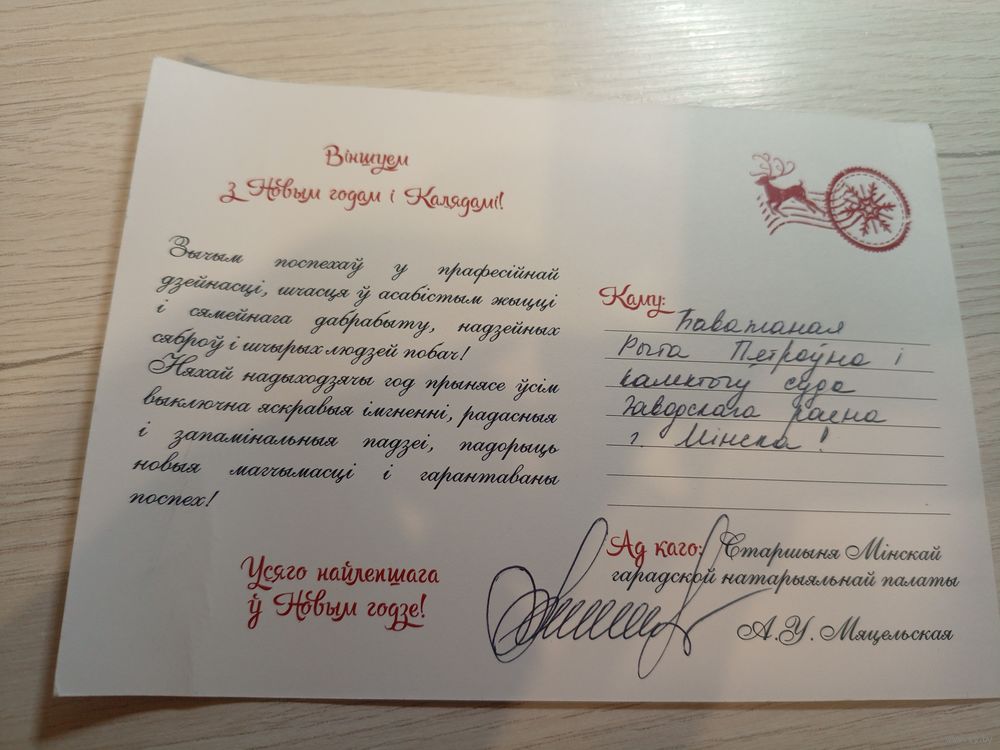 Віншуем
з Новым годам і Калядамі!
Зычым поспехаў у прафесійнай
дзейнасці, шчасця ў асабістым жыцці
і сямейнага дабрабыту, надзейных
сяброў і шчырых людзей побач!
Няхай надыходзячы год прынясе ўсім
выключна яскравыя імгненні, радасныя
і запамінальныя падзеі, падорыць
новыя магчымасці і гарантаваны
поспех!
Усяго найлепшага
ў Новым годзе!
Каму:
Рыта Пётраўна і
суда
Заводскага раена
г. Мінска!
Ад каго: Старшыня Мінскай
гарадской натарыяльнай палаты
А.У. Мяцельская